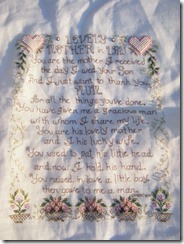 A LOVELY
MOTHER IN LAW
You are the mother I received
the day I wed your Son
And I just want to thank you,
MUM,
For all the things you've done.
You have given me a gracious man
with whom I share my life.
You are his lovely mother
and I his lucky wife.
You used to pat his little head
and now I hold his hand.
You raised in love a little boy,
then gave to me a man.